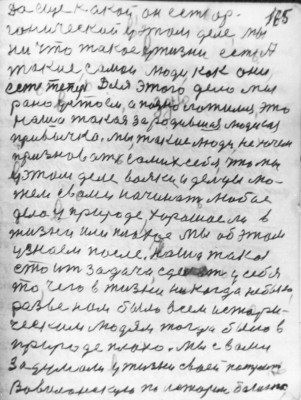 да еще какой, он есть ор-
ганической у этом деле мы
ни что такое у жизни есть А
такие, самои люди как они
есть теперь Для этого дела мы
рано встаем, а поздно ложимся, это
наша такая зародившая людская
привычка. Мы такие люди, не хочем
признавать самих себя, что мы
у этом деле вояки и дельцы мо-
жем с вами начинать любое
дело у природе хорошое ли в
жизни или плохое мы об этом
узнаем после, наша такая
стоит задача сделать у себя
то чего в жизни никогда не было
разве нам было всем истори-
ческим людям тогда было в
природе плохо. Мы с вами
задумали у жизни своей
Вавилонскую по истории